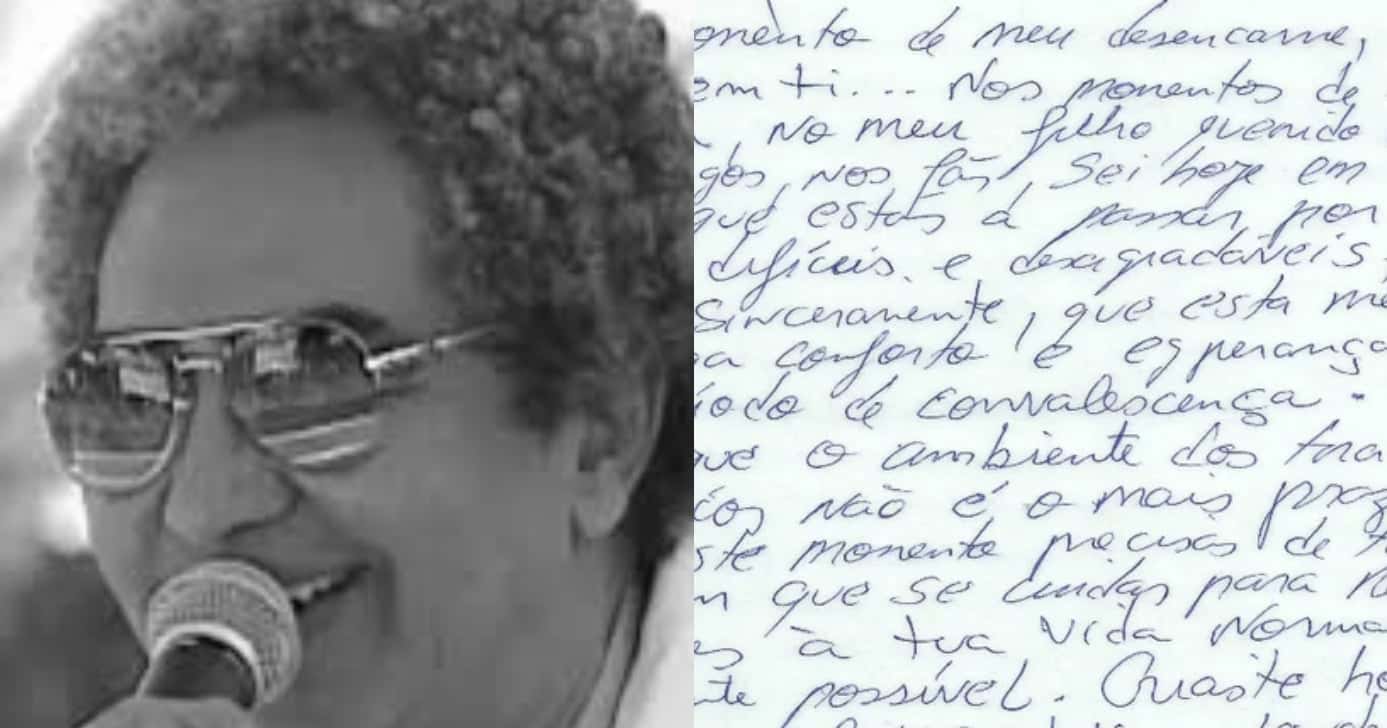 omento de meu desencarne,
em ti... Nos momentos de
, no meu filho querido
gos, nos fãs, Sei hoje em
que estás a passar por
difíceis. e desagradáveis
Sinceramente, que esta me
conforto e esperança
íodo de convalescença.
que o ambiente dos
cos não é o mais praz
ste momento precisas de
m que se cuidas para
à tua vida norma
nte possível. Criaste